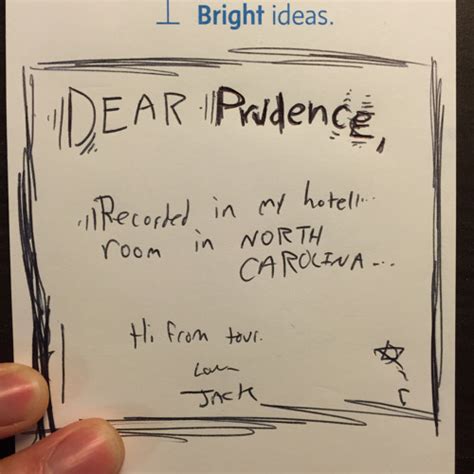 Bright ideas.
DEAR Prudence,
Recorded in my hotell...
room in NORTH
CAROLINA...
Hi from tour.
Love
JACK